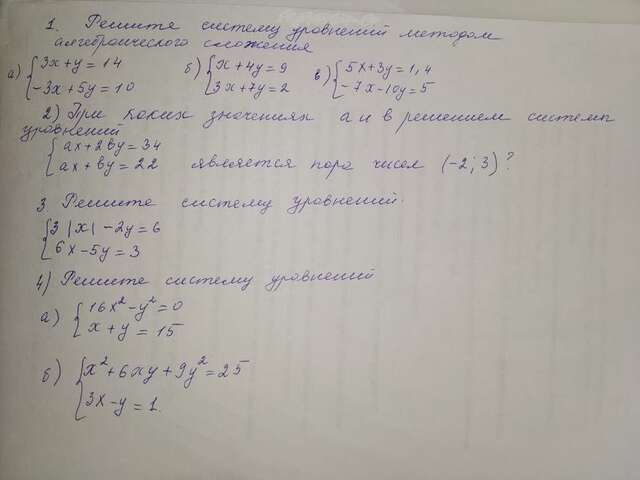 1. Решите систему уравнений методом
алгебраического сложения
а) {3x+y=14 б) {x+4y=9 в) {5x+3y=1,4
-3x+5y=10 3x+7y=2 -7x-10y=5
2) При каких значениях а и в решением системы
уравнений
{ax+2by=34
ax+by=22 является пара чисел (-2;3)?
3 Решите систему уравнений.
{3|x|-2y=6
6x-5y=3
4) Решите систему уравнений
а) {16x²-y²=0
x+y=15
б) {x²+6xy+9y²=25
3x-y=1.